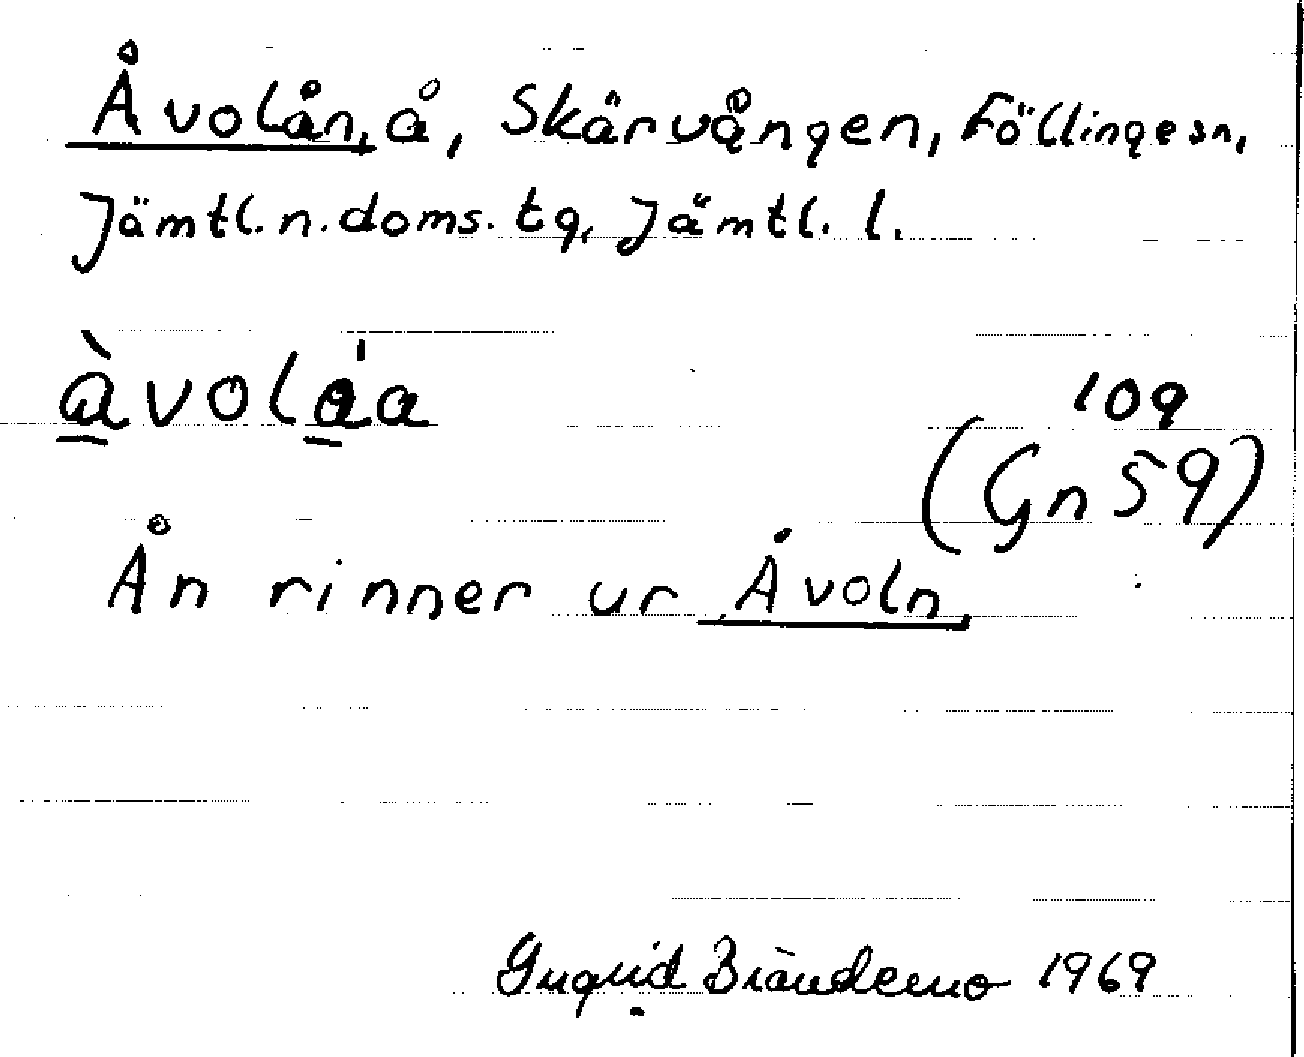 Åvolån, å, Skärvången, Föllinge sn,
Jämtl. n. doms. tg, Jämtl. l.
àvoláa
109
(Gn 59)
Ån rinner ur Åvoln.
Ingrid Brändemo 1969